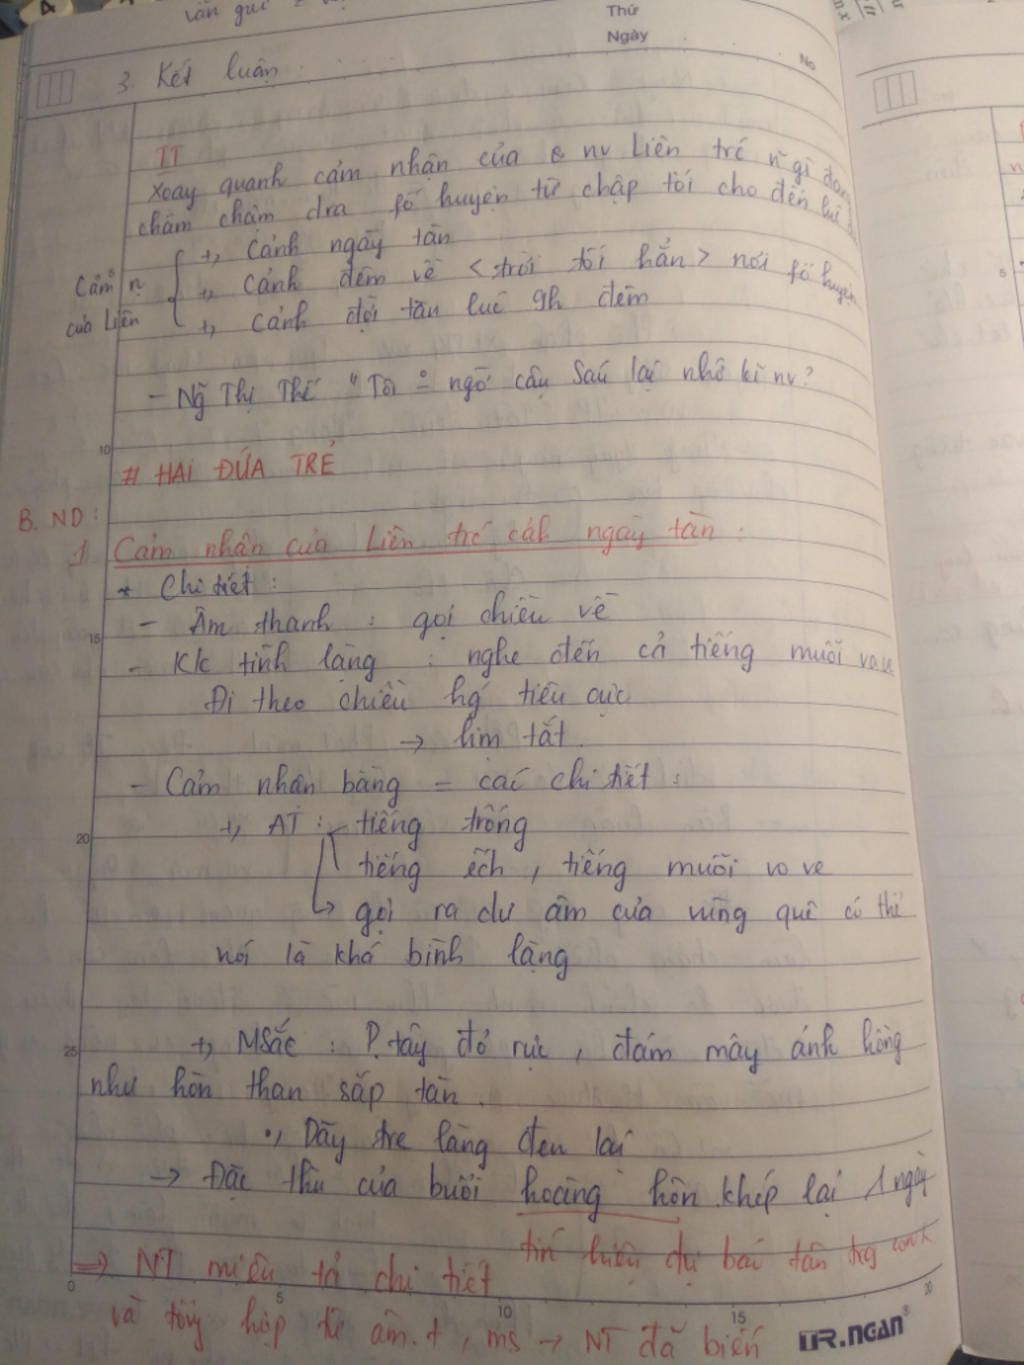 văn gửi
Thứ
Ngày
No
3. Kết luận
TT
Xoay quanh cảm nhận của nv Liên trc n~ gì đang
chầm chậm dra fố huyện từ chập tối cho đến lúc
+, Cảnh ngày tàn
Cảm n
của Liên
+, Cảnh đêm về < trời tối hẳn > nơi fố huyện
+, Cảnh đợi tàu lúc 9h đêm
- Ng~ Thị Thế "Tôi ngờ cậu Sáu lại nhớ kĩ nv?
10
# HAI ĐỨA TRẺ
B. ND:
1 Cảm nhận của Liên trc cảh ngày tàn:
* Chi tiết:
15
- Âm thanh : gọi chiều về
- Kk tĩnh lặng : nghe đến cả tiếng muỗi vo ve
Đi theo chiều hg tiêu cực
→ lịm tắt
- Cảm nhận bằng = các chi tiết:
20
+, AT: tiếng trống
tiếng ếch, tiếng muỗi vo ve
↳ gợi ra dư âm của vùng quê có thể
nói là khá bình lặng
25
+, MSắc : P. tây đỏ rực, đám mây ánh hồng
như hòn than sắp tàn.
•, Dãy tre làng đen lại
→ Đặc thù của buổi hoàng hôn khép lại 1 ngày
tín hiệu dự báo tàn trg
⇒ NT miêu tả chi tiết
0 5 10 15 20
và tổng hợp từ âm.t, ms → NT đã biến
TR.NGAN®